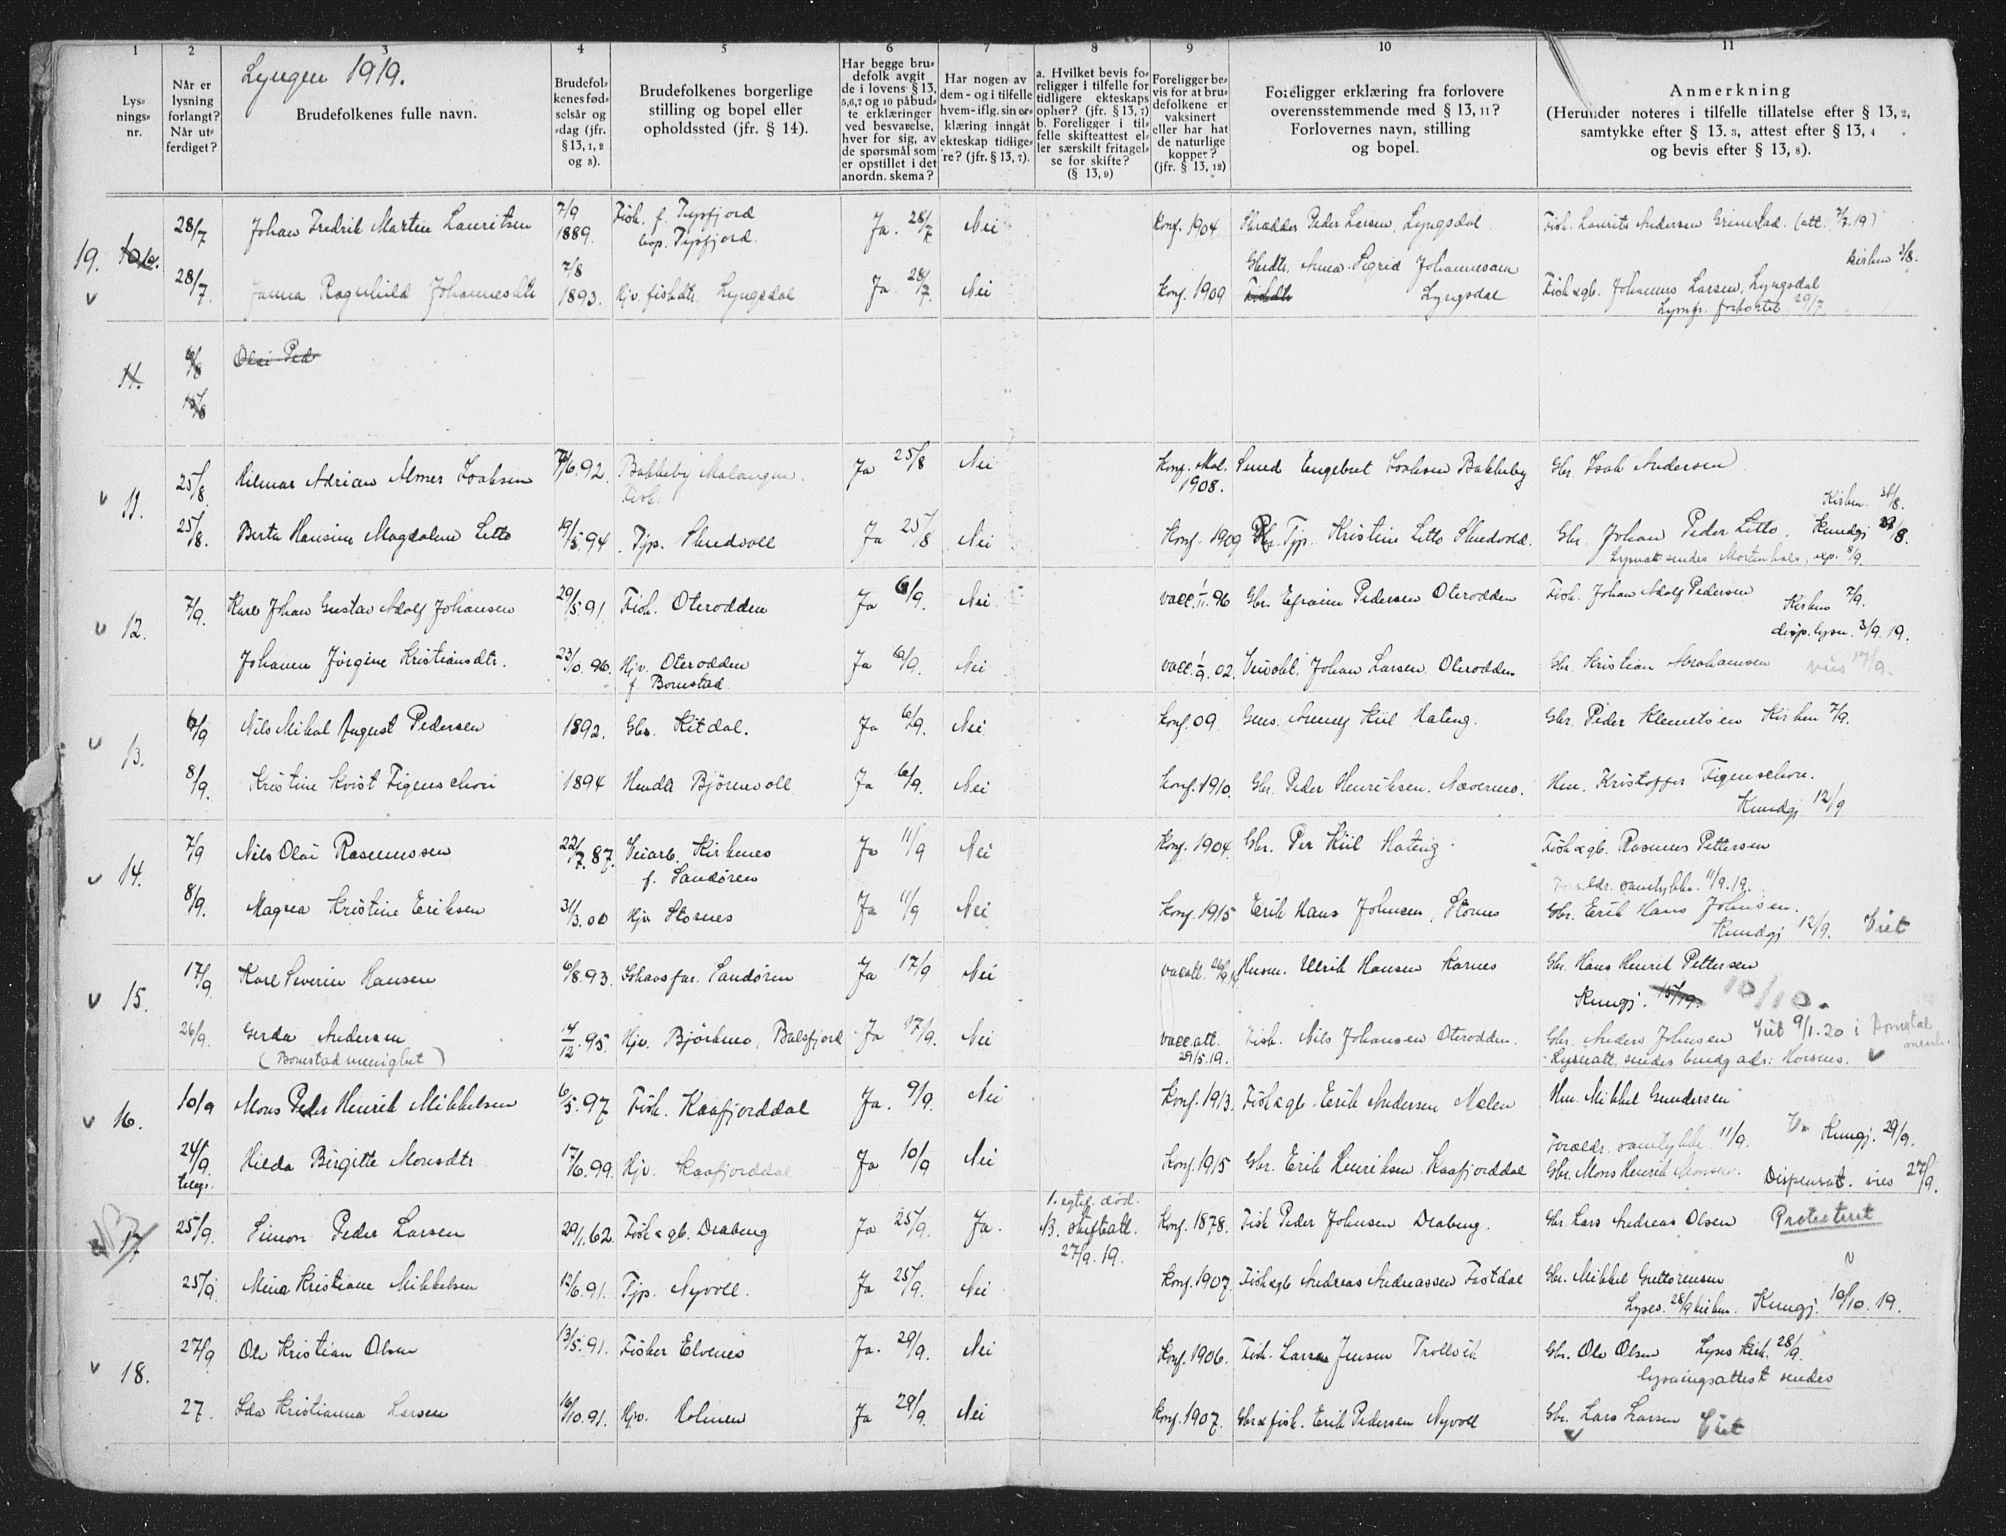 1 2 3 4 5 6 7 8 9 10 11
Lyngen 1919.
Lysningsnr.
Når er lysning forlangt? Når utferdiget?
Brudefolkenes fulle navn.
Brudefolkenes fødselsår og -dag (jfr. § 13, 1, 2 og 3).
Brudefolkenes borgerlige stilling og bopel eller opholdssted (jfr. § 14).
Har begge brudefolk avgit de i lovens § 13, 5,6,7 og 10 påbudte erklæringer ved besvarelse, hver for sig, av de spørsmål som er opstillet i det anordn. skema?
Har nogen av dem - og i tilfelle hvem - iflg. sin erklæring inngåt ekteskap tidligere? (jfr. § 13, 7).
a. Hvilket bevis foreligger i tilfelle for tidligere ekteskaps ophør? (jfr. § 13, 7) b. Foreligger i tilfelle skifteattest eller særskilt fritagelse for skifte? (§ 13, 9)
Foreligger bevis for at brudefolkene er vaksinert eller har hat de naturlige kopper? (jfr. § 13, 12)
Foreligger erklæring fra forlovere overensstemmende med § 13, 11? Forlovernes navn, stilling og bopel.
Anmerkning (Herunder noteres i tilfelle tillatelse efter § 13, 2, samtykke efter § 13. 3, attest efter § 13, 4 og bevis efter § 13, 8).
19. 28/7 Johan Fredrik Martin Lauritsen 7/9 1889. Fisk. f. Typfjord bop. Typfjord. Ja. 28/7 Nei Konf. 1904 Skrædder Peder Larsen, Lyngsdal Fisk. Laurits Andersen Grimstad. (att. 7/7 19)
Kirken 3/8.
28/7 Janna Ragnhild Johannesdtr 7/8 1893. Hjv. fiskdtr. Lyngsdal Ja 28/7. Nei Konf. 1909 Gbrdtr. Anna Sigrid Johannesen Lyngsdal Fisk & gb. Johannes Larsen, Lyngsdal
29/7
11. 6/8 Olai Ped
11. 25/8. Hilmar Adrian Almer Isaksen 7/6.92. Bakkeby Malangen. Fisk. Ja 25/8 Nei Konf. Mal. 1908. Smed Engebret Isaksen Bakkeby Gbr. Isak Andersen
Kirken 31/8.
25/8. Berta Hansine Magdalene Litto 19/5.94 Tjp. Skredvoll Ja 25/8 Nei Konf. 1909 Tjp. Kristine Litto Skredvold. Gbr. Johan Peder Litto. Kundgj 28/8.
sendes Mortenhals, exp. 8/9.
12. 7/9. Karl Johan Gustav Adolf Johansen 29/5.91. Fisk. Oterodden Ja 6/9. Nei vacc. 1/11. 96 Gbr. Efraim Pedersen Oterodden Fisk. Johan Adolf Pedersen
Kirken 7/9.
disp. lysn. 3/9.19.
Johanna Jørgine Kristiansdtr. 23/10.96. Hjv. Oterodden f. Bomstad. Ja 6/9. Nei vacc. 1/9. 02 Johan Larsen Oterodden Gbr. Kristian Abrahamsen vies 17/9.
13. 6/9 Nils Mikal August Pedersen 1892. Gbr. Kitdal. Ja 6/9. Nei Konf. 09. Hateng. Gbr Peder Klemetsen Kirken 7/9.
8/9. Kristine Kvist Figenschou 1894 Bjørnvoll Ja 6/9. Nei Konf. 1910. Gbr. Peder Henriksen. Nævernes. Hm. Kristoffer Figenschou.
Kundgj 12/9
14. 7/9 Nils Olai Rasmussen 22/7.87. Veiarb. Kirkenes f. Sandøren Ja 11/9 Nei Konf. 1904. Gbr. Per Kiil Hateng. Fisk & gb. Rasmus Pettersen
Foreldr. samtykke. 11/9.19.
8/9. Magna Kristine Eriksen 31/3.00 Hjv Stornes Ja 11/9 Nei Konf. 1915 Erik Hans Johnsen, Stornes Gbr. Erik Hans Johnsen.
Kundgj 12/9. Viet
15. 17/9 Karl Severin Hansen 6/8.93. Sandøren Ja 17/9 Nei Husm. Ulrik Hansen Karnes Gbr. Hans Henrik Pettersen
Kungj. 10/10.
26/9. Gerda Andersen (Bomstad menighet) 14/12.95. Hjv. Bjørkmo, Balsfjord Ja 17/9. Nei vacc. att. 29/5.19. Fisk. Nils Johansen Oterodden. Gbr. Anders Johnsen Viet 9/1.20 i
Lysnatt. sendes brudg. adr: Horsnes.
16. 10/9 Mons Peder Henrik Mikkelsen 6/5.97 Fisk. Kaafjorddal Ja. 9/9. Nei Konf. 1913. Fisk & gb. Erik Andersen Melen Hm. Mikkel Gundersen
Foreldr. samtykke. 11/9. Kungj. 29/9.
24/9. Hilda Birgitte Monsdtr 17/6.99. Hjv. Kaafjorddal Ja 10/9 Nei Konf. 1915 Gbr. Erik Henriksen Kaafjorddal Gbr. Mons Henrik Monsen. Dispensat. vies 27/9.
17 25/9. Simon Peder Larsen 29/1.62 Fisk & gb. Draberg Ja 25/9. Ja. 1. egtef. død. B. skifteatt. 27/9.19. Konf. 1878. Fisk Peder Johnsen Draberg. Gbr. Lars Andreas Olsen Protesteret
25/9. Mina Kristiane Mikkelsen 12/6.91. Tjp. Nyvoll. Ja 25/9. Nei Konf. 1907. Fisk & gb Andreas Andreassen Fastdal Gbr. Mikkel Guttormsen
Lyses. 28/9 kirken. Kungj. 10/10.19.
18. 27/9 Ole Kristian Olsen 13/5.91. Fisker Elvenes Ja. 29/9. Nei Konf. 1906. Fisk. Lars Jensen Trollvik Gbr. Ole Olsen Lyses Kirk. 28/9.
lysningsattest sendes
27. Ida Kristianna Larsen 16/10.91. Hjv. Holmen Ja 29/9. Nei Konf. 1907. Gbr & fisk. Erik Pedersen Nyvoll Gbr. Lars Larsen Viet